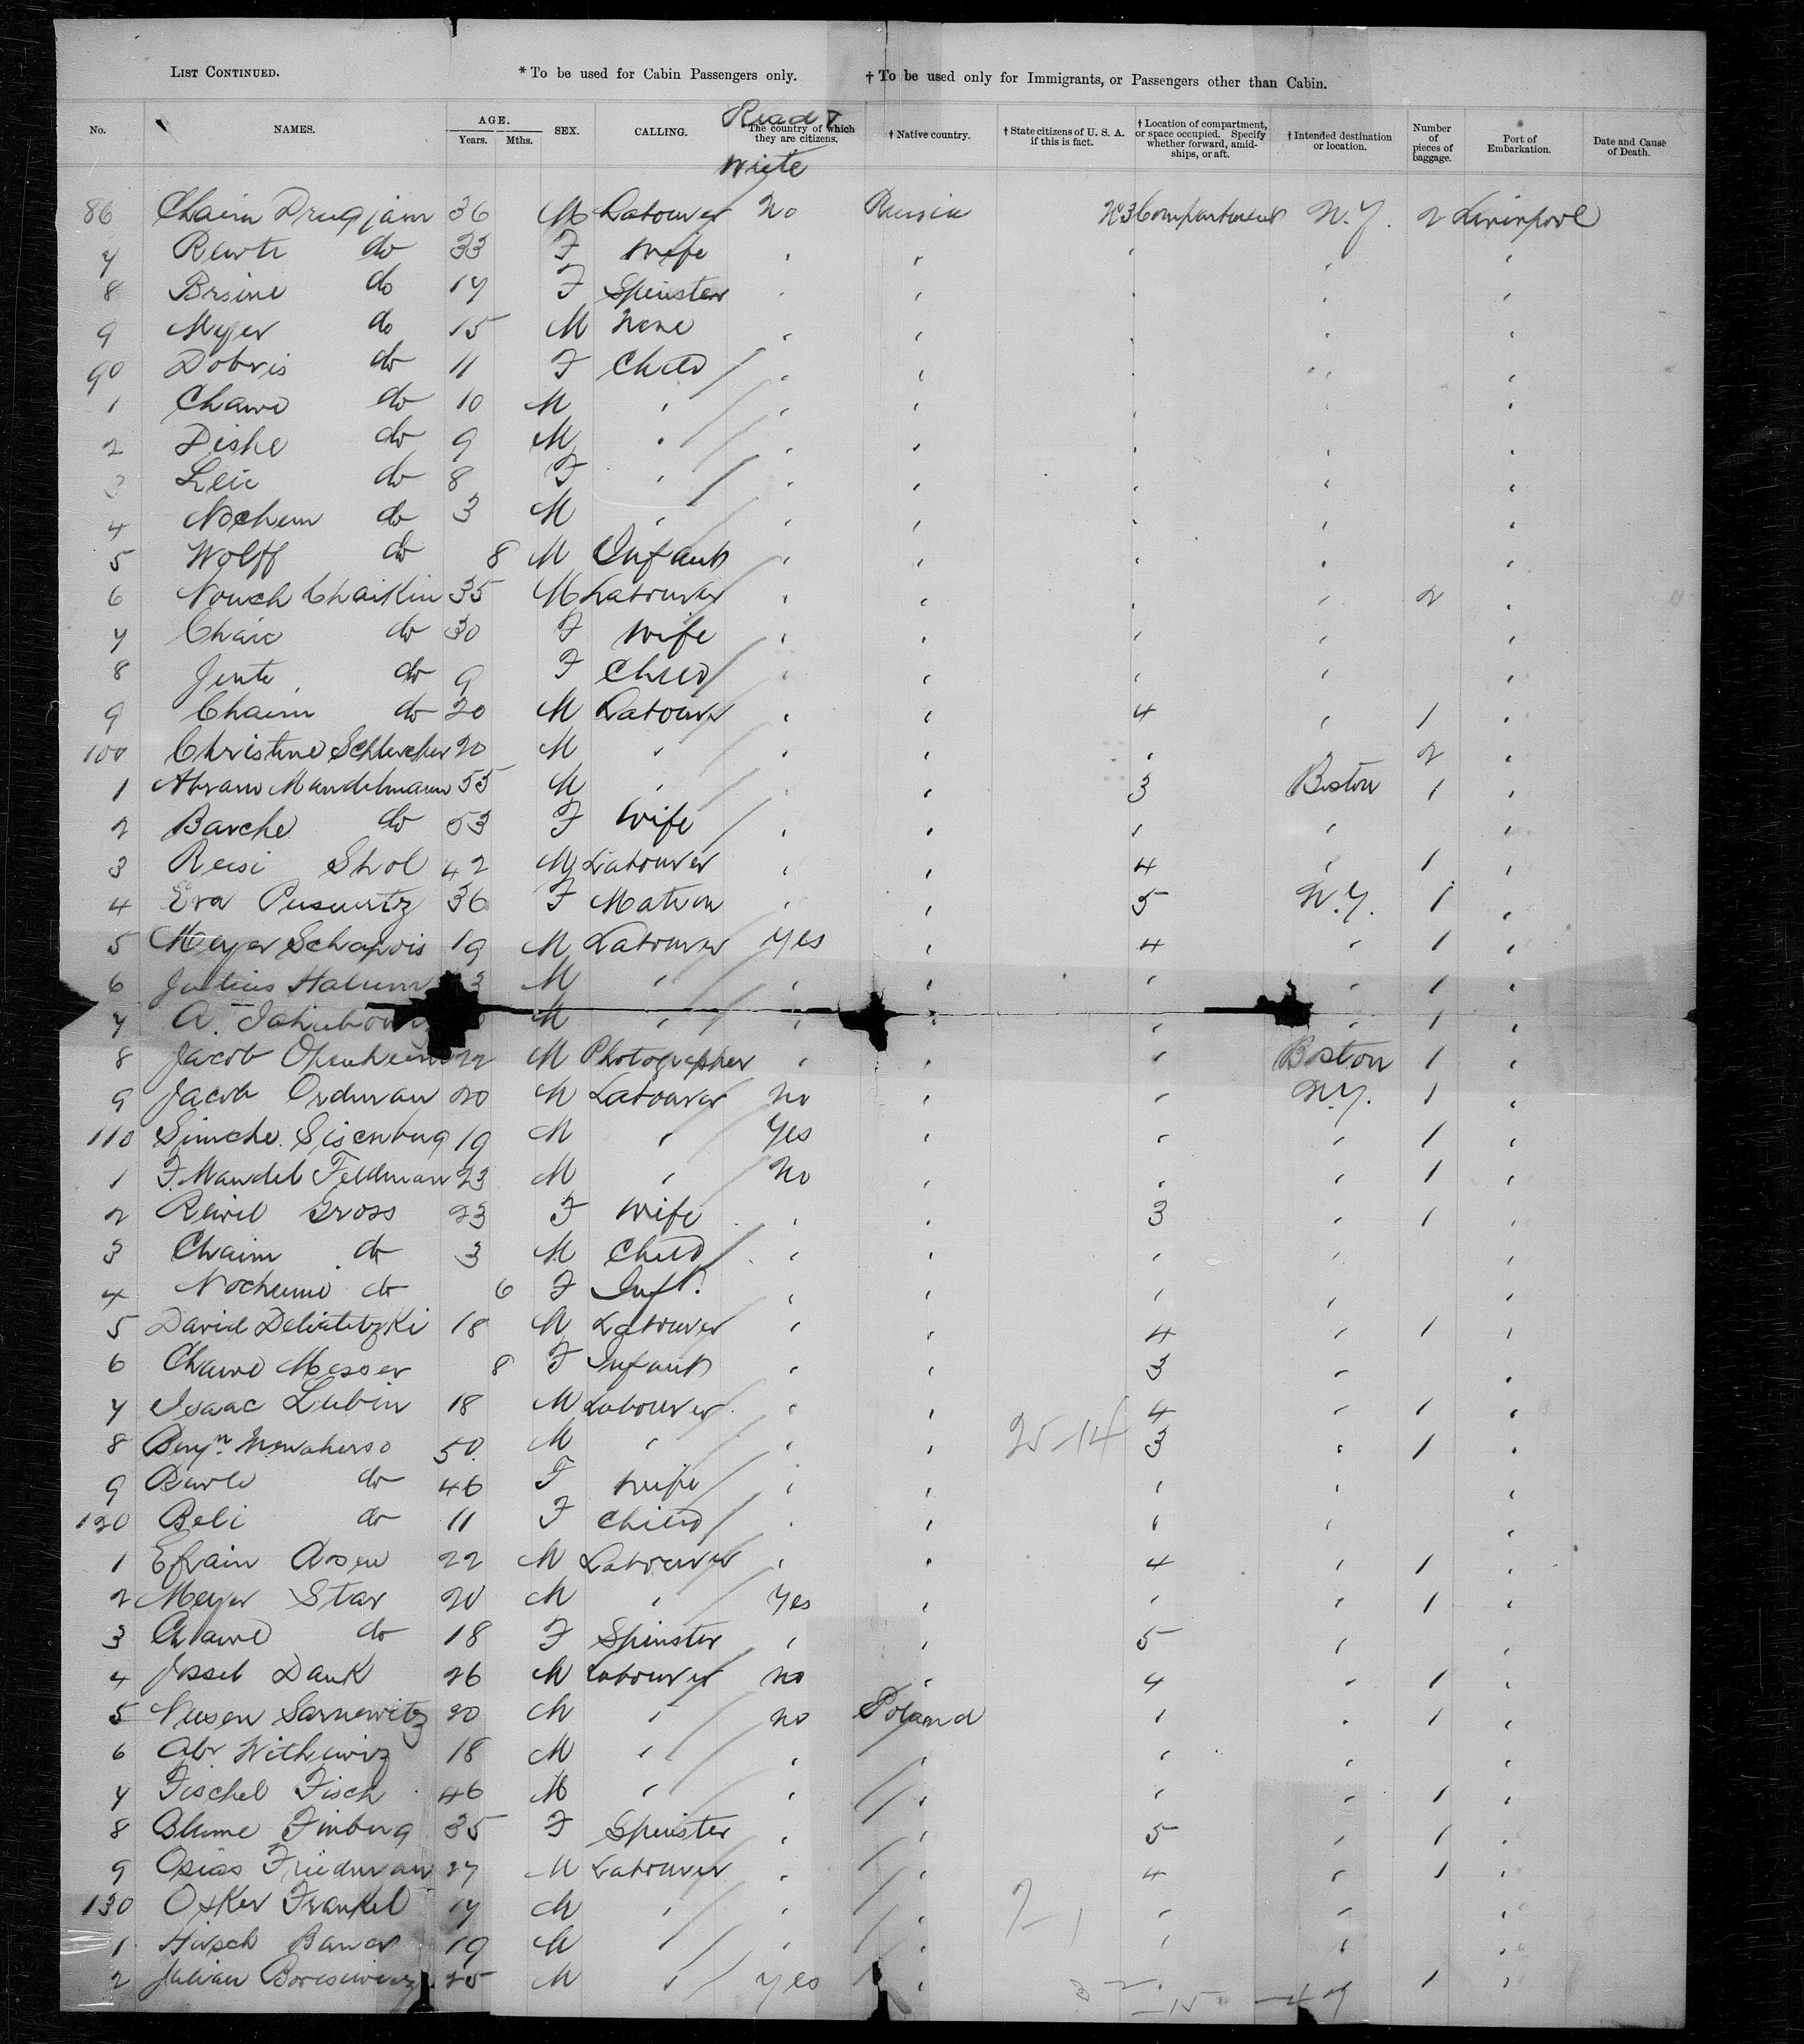 LIST CONTINUED. * To be used for Cabin Passengers only. † To be used only for Immigrants, or Passengers other than Cabin.
No. NAMES. AGE. Years. Mths. SEX. CALLING. The country of which they are citizens. † Native country. † State citizens of U. S. A. if this is fact. † Location of compartment, or space occupied. Specify whether forward, amidships, or aft. † Intended destination or location. Number of pieces of baggage. Port of Embarkation. Date and Cause of Death.
Read &
write
86 Chaim 36 M Labourer No Russia No 3 Compartment N.Y. 2 Liverpool
7 do 33 F Wife
8 do 17 F Spinster
9 Meyer do 15 M None
90 Dobris do 11 F Child
1 Chawe do 10 M "
2 Dishe do 9 M "
3 Leie do 8 F "
4 Nochem do 3 M "
5 Wolff do 8 M Infant
6 Nouch Chaikin 35 M Labourer 2
7 Chaie do 30 F Wife
8 Jente do 9 F Child
9 Chaim do 20 M Labourer 4 1
100 Christine 20 M " 2
1 Abram Mandelmann 55 M " 3 Boston 1
2 Barche do 53 F Wife
3 Reisi Shol 42 M Labourer 4 1
4 Eva 36 F Matron 5 N.Y. 1
5 Meyer Schapois 19 M Labourer Yes 4 1
6 Julius M " 1
7 A. M " 1
8 Jacob 22 M Photographer Boston 1
9 Jacob Orduran 20 M Labourer No N.Y. 1
110 Simche Sisenburg 19 M " Yes 1
1 F. Mandel Feldman 23 M " No 1
2 Gross 23 F Wife 3 1
3 Chaim do 3 M Child
4 Nocheime do 6 F Inft.
5 David 18 M Labourer 4 1
6 Chawe Messer 8 F Infant 3
7 Isaac Lubin 18 M Labourer 4 1
8 Benjn. 50 M " 25-14 3 1
9 do 46 F Wife
120 Beli do 11 F Child
1 Efraim 22 M Labourer 4 1
2 Meyer Star 20 M " Yes 1
3 Chawe do 18 F Spinster 5
4 Jossel Dank 26 M Labourer no 4 1
5 Nusen Sarnewitz 20 M " no Poland 1
6 Abr 18 M "
7 Fischel Fisch 46 M " 1
8 Blume Finberg 35 F Spinster 5 1
9 Osias Friedman 27 M Labourer 4 1
130 Osker Frankel 17 M "
1 Hirsch Baner 19 M "
2 Julian 25 M " Yes 1